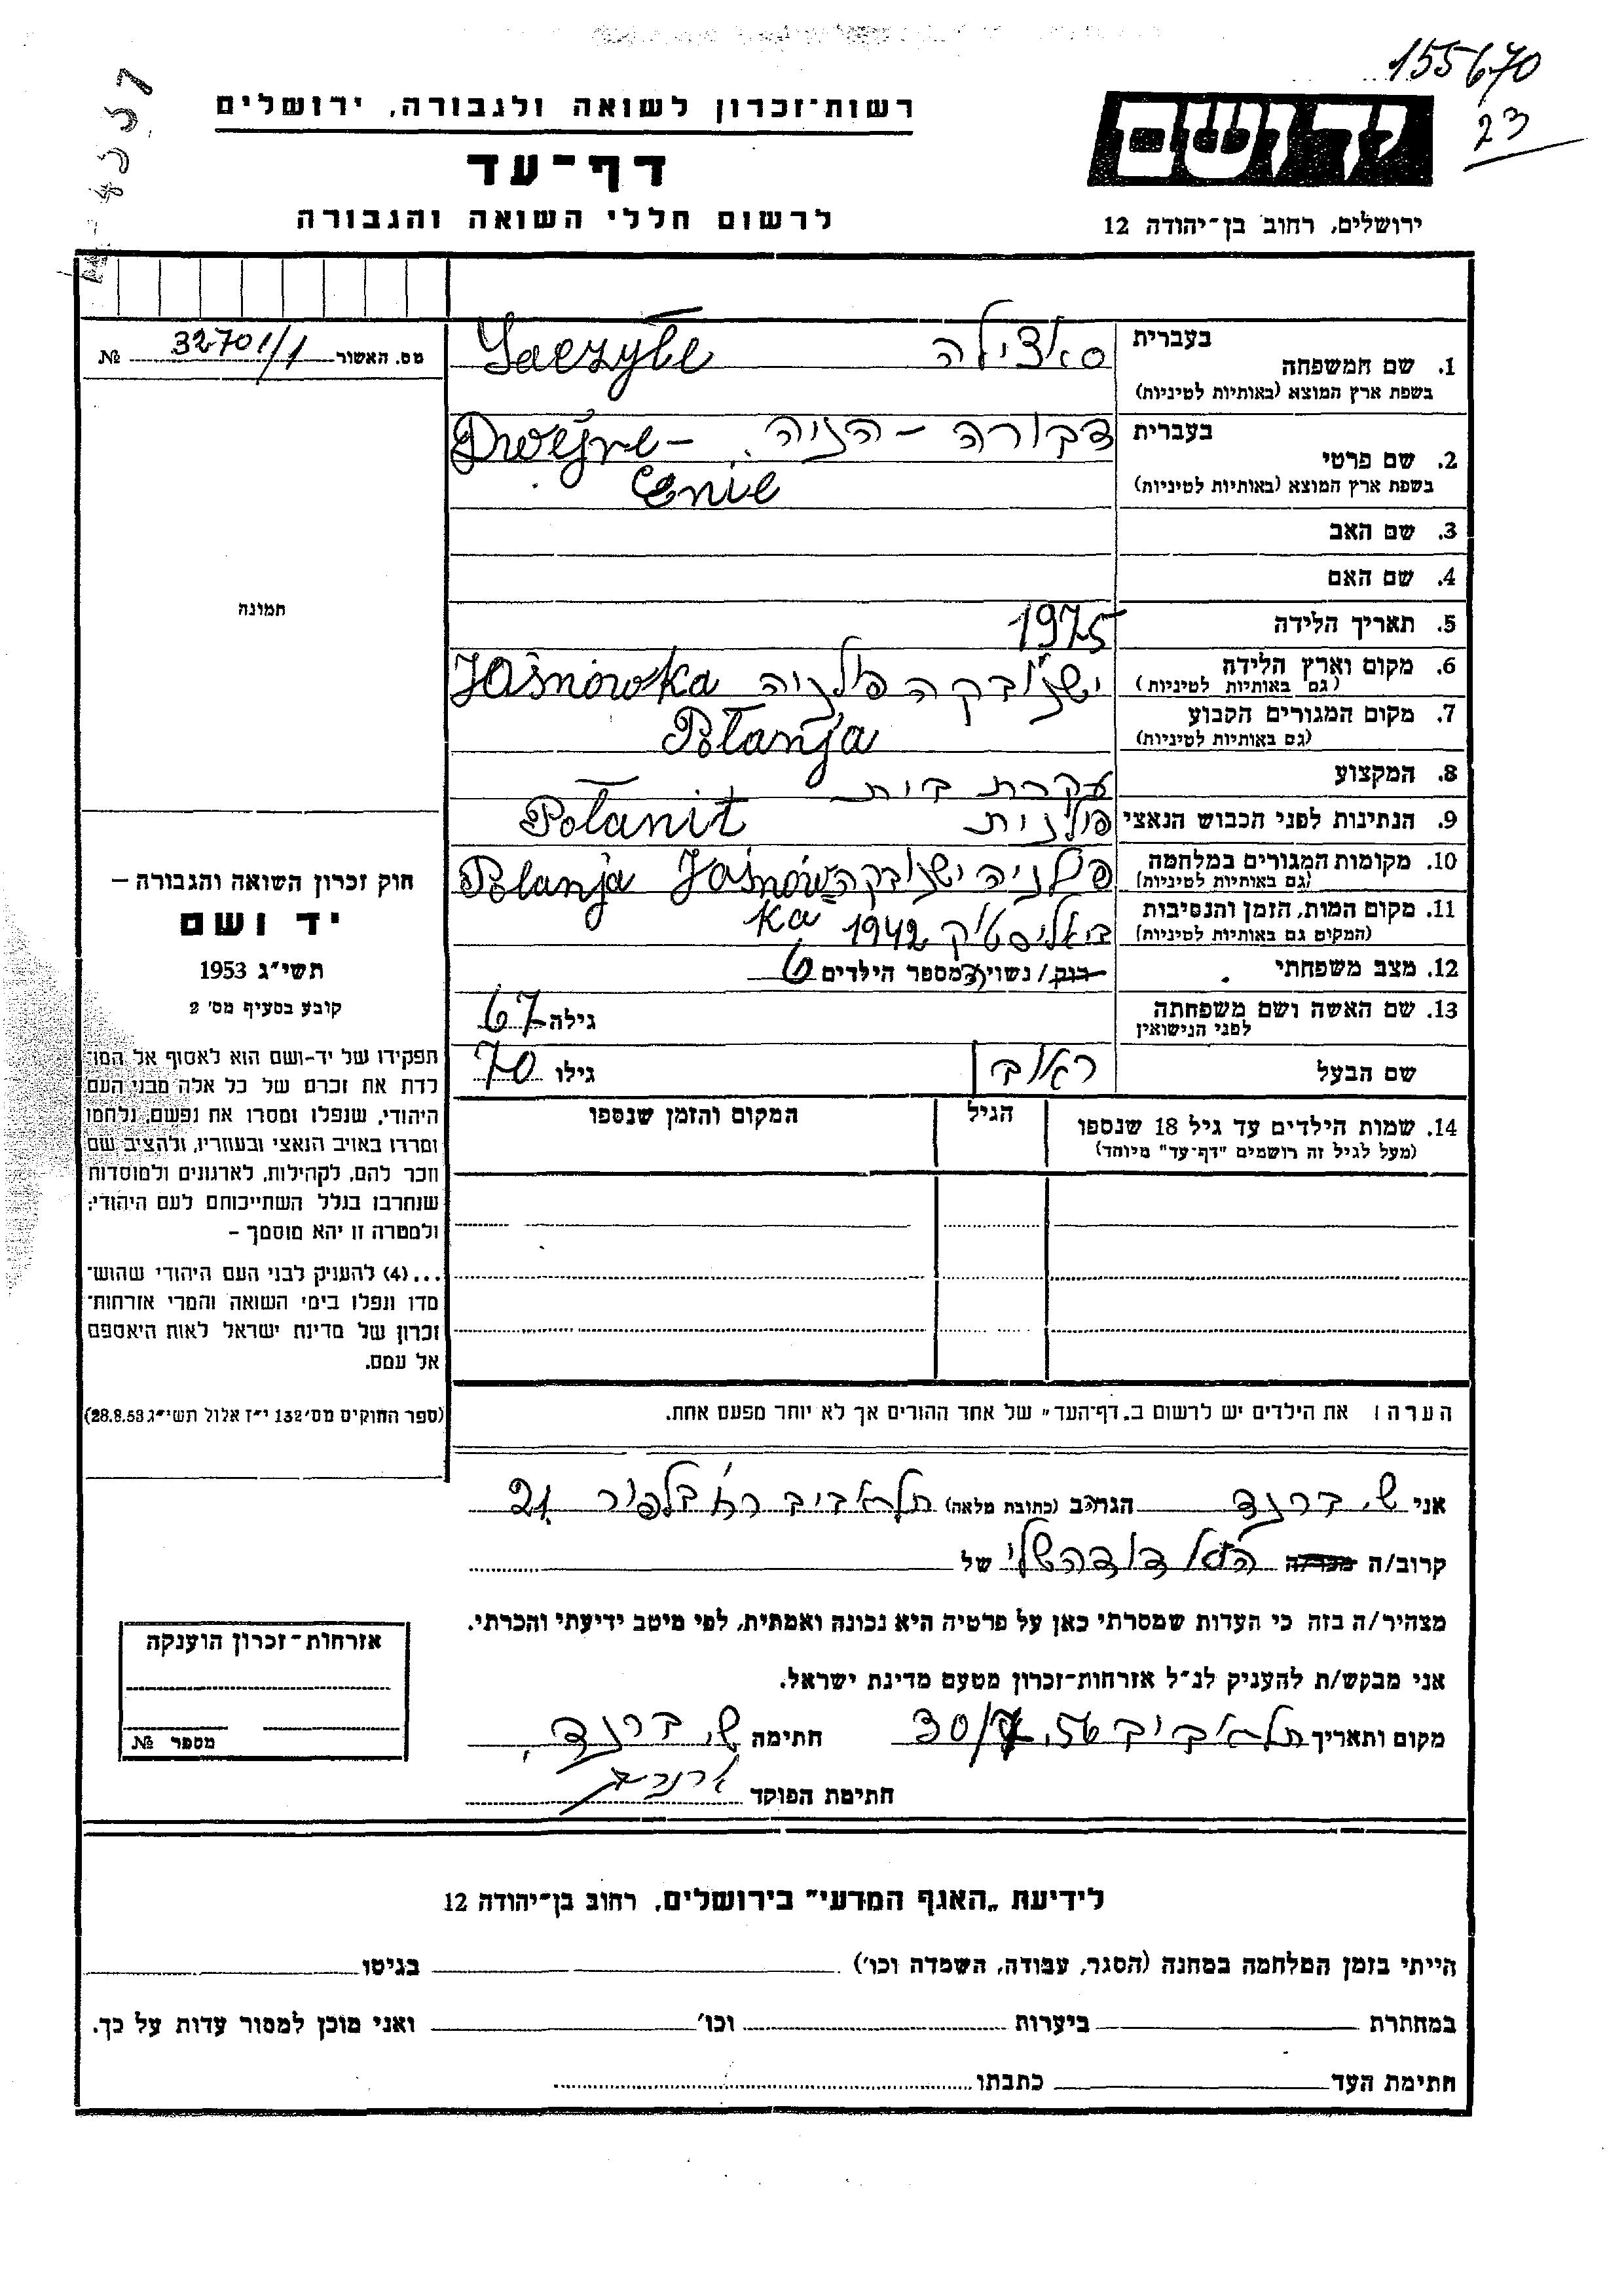 155670
23
רשות־זכרון לשואה ולגבורה, ירושלים
יד ושם
דף־עד
לרשום חללי השואה והגבורה
ירושלים, רחוב בן־יהודה 12
מס. האשור 32701/1 №
בעברית
1. שם המשפחה
סאצילה
(בשפת ארץ המוצא (באותיות לטיניות
בעברית
2. שם פרטי
דבורה - הניה
Dwejre -
Enie
(בשפת ארץ המוצא (באותיות לטיניות
3. שם האב
4. שם האם
תמונה
5. תאריך הלידה 1975
6. מקום וארץ הלידה ישנובקה פולניה Jaśnówka
(גם באותיות לטיניות)
7. מקום המגורים הקבוע
Polanja
(גם באותיות לטיניות)
8. המקצוע עקרת בית
9. הנתינות לפני הכבוש הנאצי פולנית Polanit
10. מקומות המגורים במלחמה פולניה ישנובקה Polanja Jaśnów=
ka
(גם באותיות לטיניות)
11. מקום המות, הזמן והנסיבות ביאליסטוק 1942
(המקום גם באותיות לטיניות)
12. מצב משפחתי רוק / נשוי/ה מספר הילדים 6
13. שם האשה ושם משפחתה
לפני הנישואין
גילה 67
שם הבעל ראובן גילו 70
14. שמות הילדים עד גיל 18 שנספו
(מעל לגיל זה רושמים "דף־עד" מיוחד)
הגיל
המקום והזמן שנספו
חוק זכרון השואה והגבורה –
יד ושם
תשי"ג 1953
קובע בסעיף מס' 2
תפקידו של יד-ושם הוא לאסוף אל המו־
לדת את זכרם של כל אלה מבני העם
היהודי, שנפלו ומסרו את נפשם, נלחמו
ומרדו באויב הנאצי ובעוזריו, ולהציב שם
וזכר להם, לקהילות, לארגונים ולמוסדות
שנחרבו בגלל השתייכותם לעם היהודי;
ולמטרה זו יהא מוסמך –
...(4) להעניק לבני העם היהודי שהוש־
מדו ונפלו בימי השואה והמרי אזרחות־
זכרון של מדינת ישראל לאות היאספם
אל עמם.
(ספר החוקים מס' 132 י"ז אלול תשי"ג 28.8.53)
הערה: את הילדים יש לרשום ב„דף־העד" של אחד ההורים אך לא יותר מפעם אחת.
אני ש. ברנד הגר/ה ב (כתובת מלאה) תל אביב רח' בלפור 21
קרוב/ה מכר/ה של
מצהיר/ה בזה כי העדות שמסרתי כאן על פרטיה היא נכונה ואמתית, לפי מיטב ידיעתי והכרתי.
אני מבקש/ת להעניק לנ"ל אזרחות־זכרון מטעם מדינת ישראל.
מקום ותאריך תל אביב 30/7 56. חתימה ש. ברנד
חתימת הפוקד
אזרחות־זכרון הוענקה
מספר №
לידיעת „האגף המדעי" בירושלים, רחוב בן־יהודה 12
הייתי בזמן המלחמה במחנה (הסגר, עבודה, השמדה וכו') בגיטו
במחתרת ביערות וכו' ואני מוכן למסור עדות על כך.
חתימת העד כתבתו